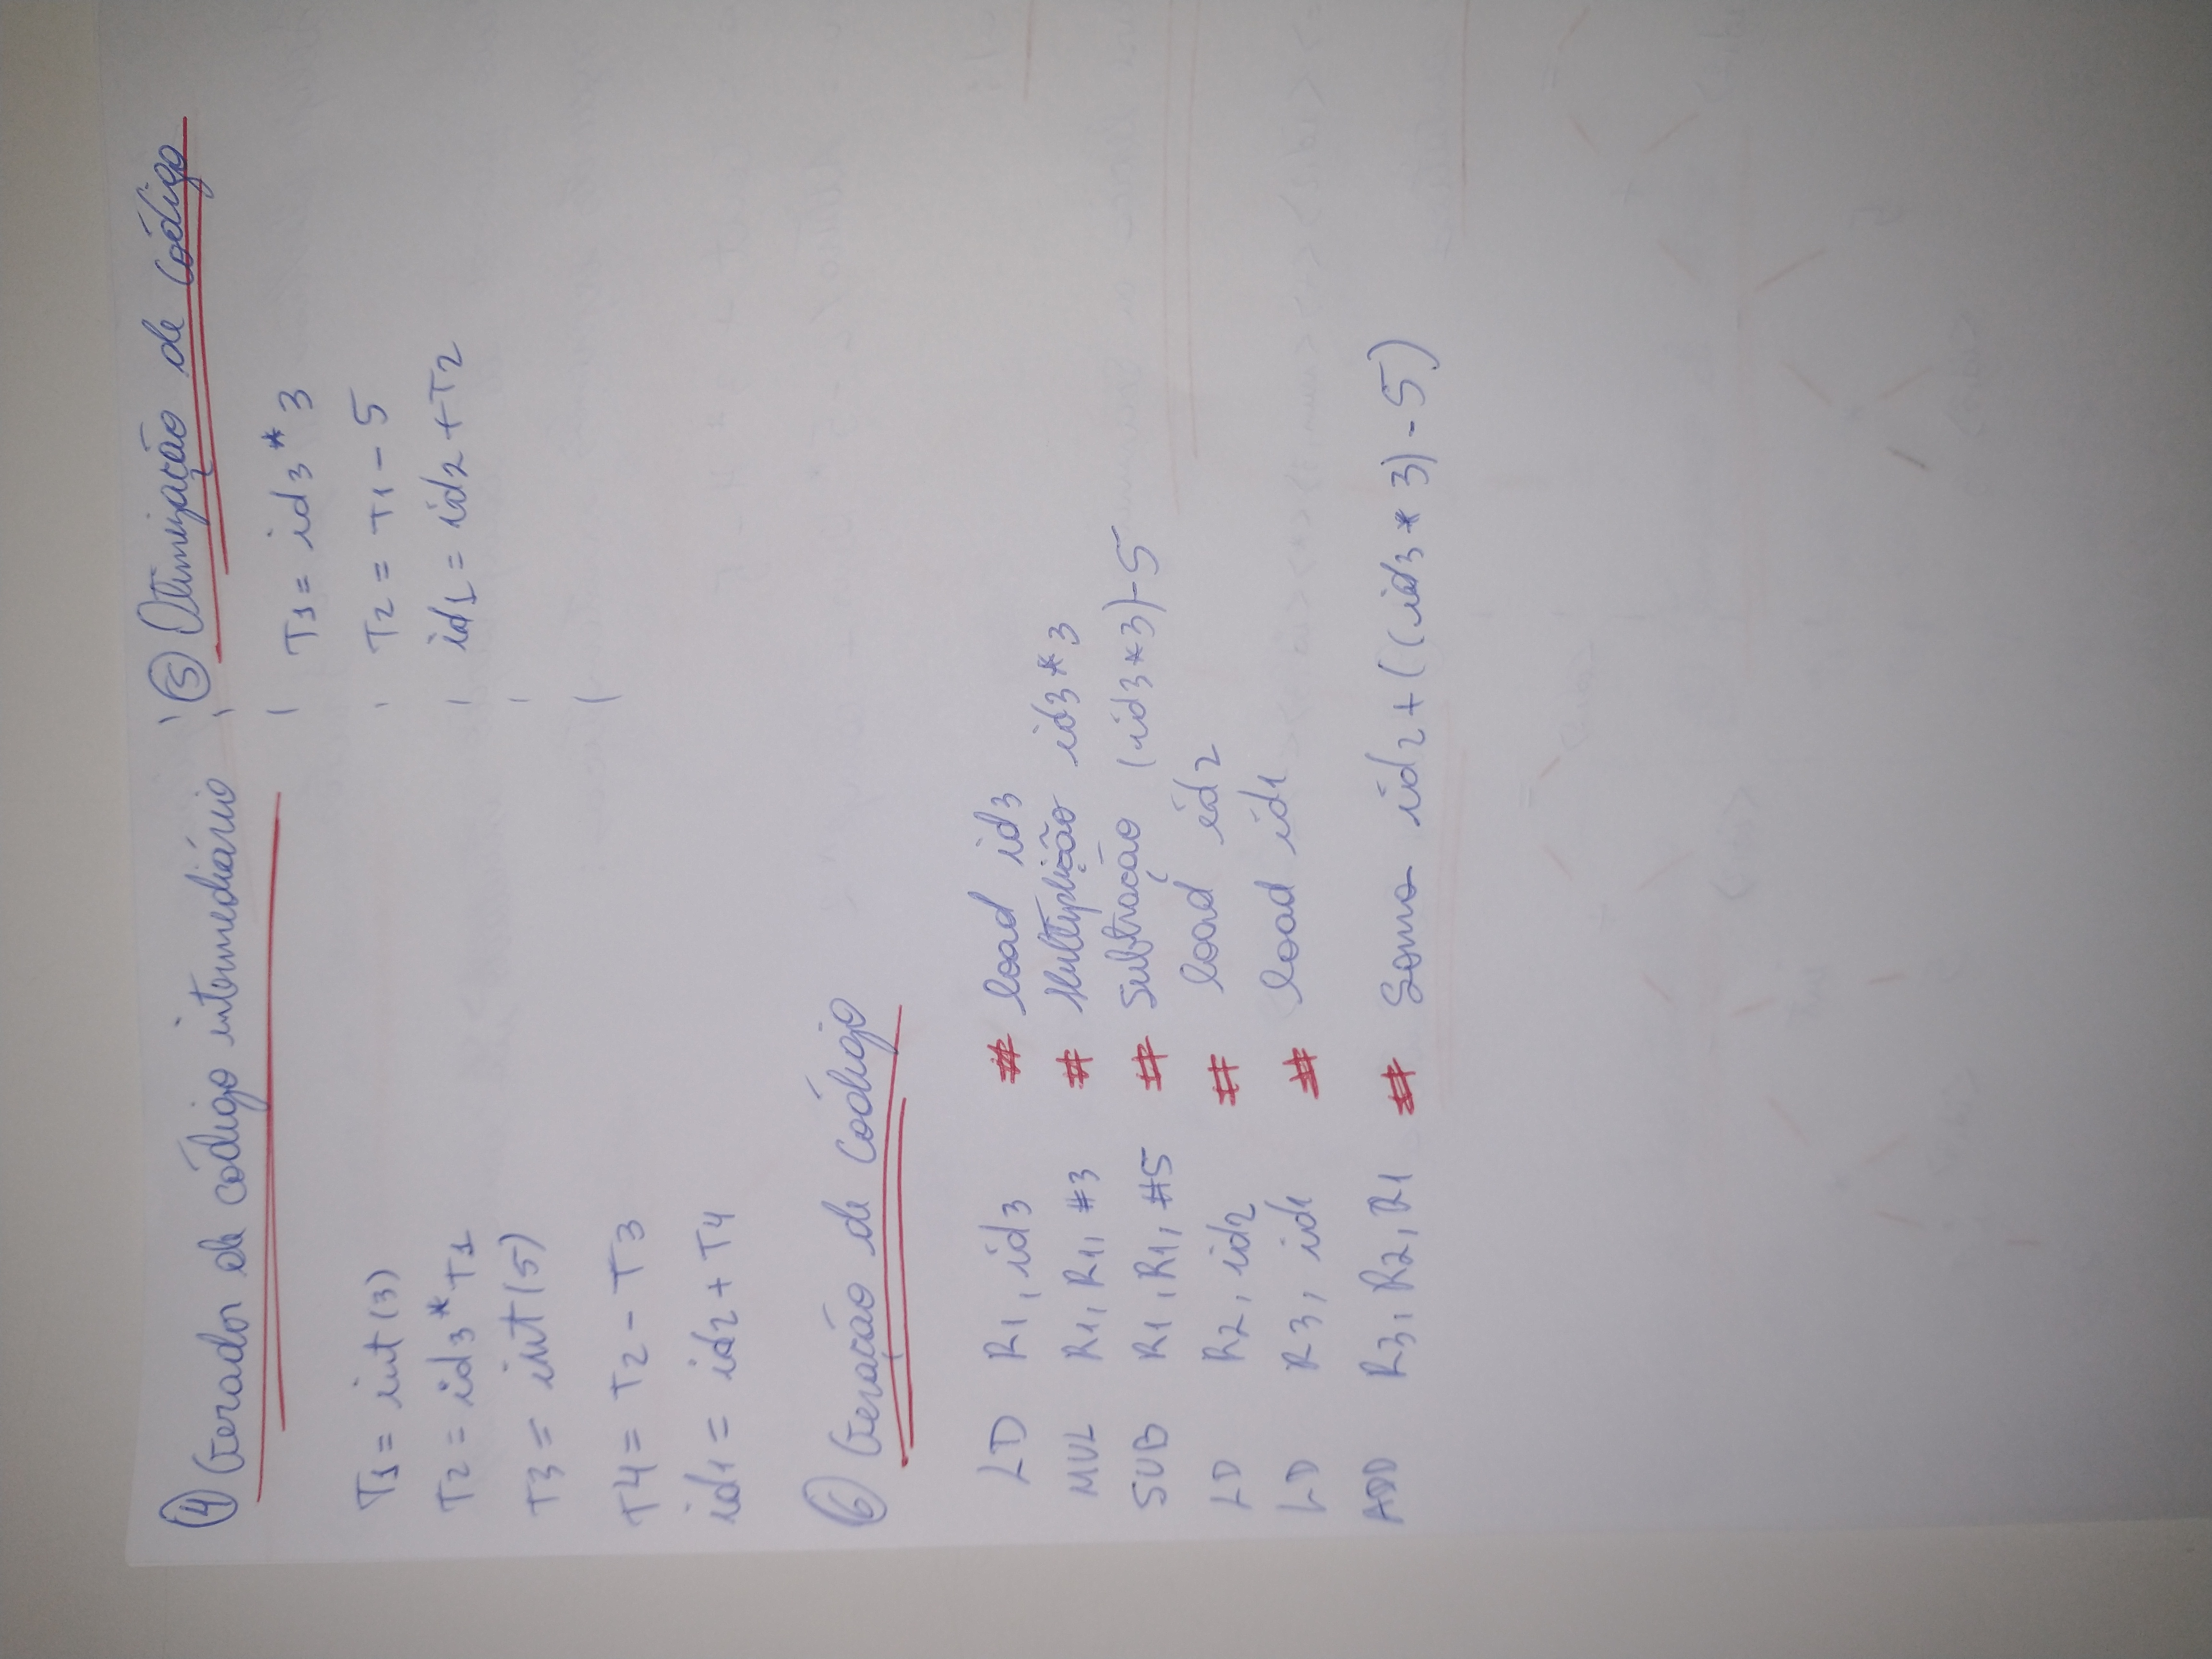 ④ Gerador de código intermediário
T1 = int(3)
T2 = id3 * T1
T3 = int(5)
T4 = T2 - T3
id1 = id2 + T4
⑤ Otimização de código
T1 = id3 * 3
T2 = T1 - 5
id1 = id2 + T2
⑥ Geração de código
LD R1, id3 # load id3
MUL R1, R1, #3 # Multiplição id3 * 3
SUB R1, R1, #5 # Subtração (id3 * 3) - 5
LD R2, id2 # load id2
LD R3, id1 # load id1
ADD R3, R2, R1 # Soma id2 + ((id3 * 3) - 5)